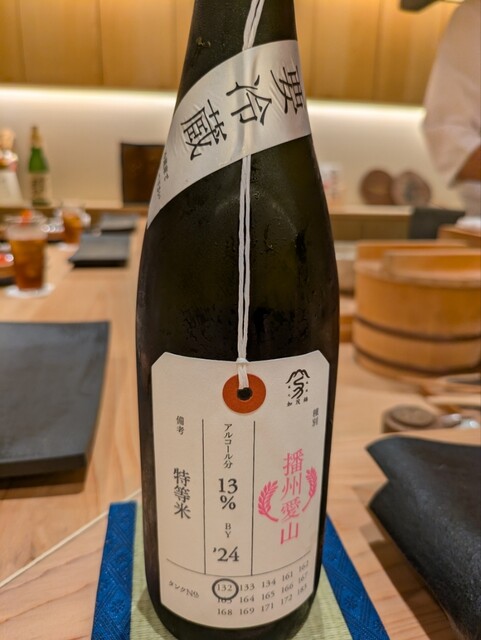 要冷蔵
種別
播州愛山
アルコール分
13%
BY
'24
備考
特等米
タンクNo
132 133 134 161 162
163 164 165 166 167
168 169 171 172 185